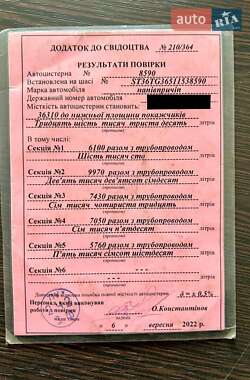 AUTO RIA
ДОДАТОК ДО СВІДОЦТВА № 210/364
РЕЗУЛЬТАТИ ПОВІРКИ
Автоцистерна № 8590
Встановлена на шасі № ST36TG36511538590
Марка автомобіля напівпричіп
Державний номер автомобіля
Місткість автоцистерни становить:
36310 до нижньої площини покажчиків
Тридцять шість тисяч триста десять літрів
(прописом)
В тому числі:
Секція №1 6100 разом з трубопроводом
Шість тисяч сто літрів
(прописом)
Секція №2 9970 разом з трубопроводом
Дев'ять тисяч дев'ятсот сімдесят літрів
(прописом)
Секція №3 7430 разом з трубопроводом
Сім тисяч чотириста тридцять літрів
(прописом)
Секція №4 7050 разом з трубопроводом
Сім тисяч п'ятдесят літрів
(прописом)
Секція №5 5760 разом з трубопроводом
П'ять тисяч сімсот шістдесят літрів
(прописом)
Секція №6 - - -
літрів
(прописом)
похибка повної місткості автоцистерни δ = ± 0,5%
Персонал, який виконував
роботи з повірки О.Константінов
" 6 " вересня 2022 р.